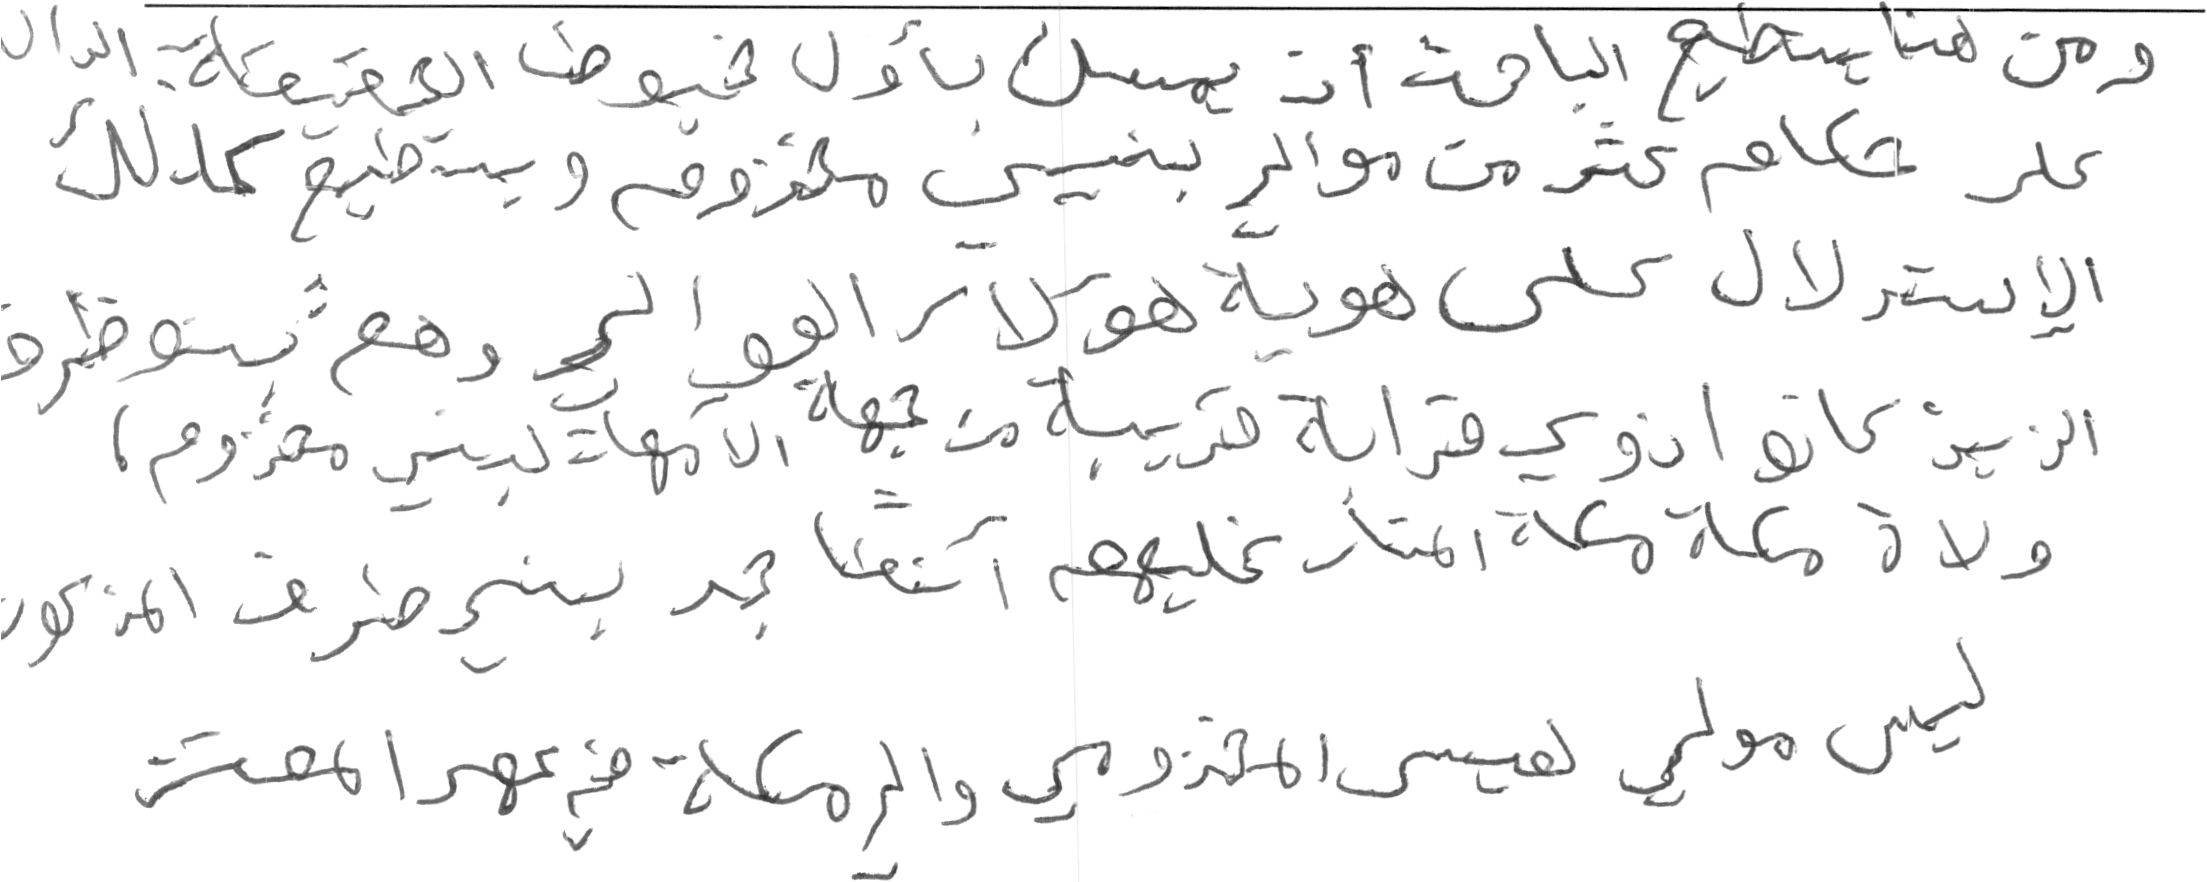 ومن هنا يستطيع الباحث أن يمسك بأول خيوط الحقيقة: الدال
على حكام عثر من موالي بنسبي مخزوم ويستطيع كذلك
الإستدلال على هوية هؤلاء الموالي وهم بنو طرف
الذين كانوا ذوي قرابة قريبة من جهة الأمهات لبني مخزوم،
ولاة مكة مكة المتأ عليهم آنفا جد بني طرف المذكور
ليس مولي لعيسى المخزومي والي مكة في عهد المعتز